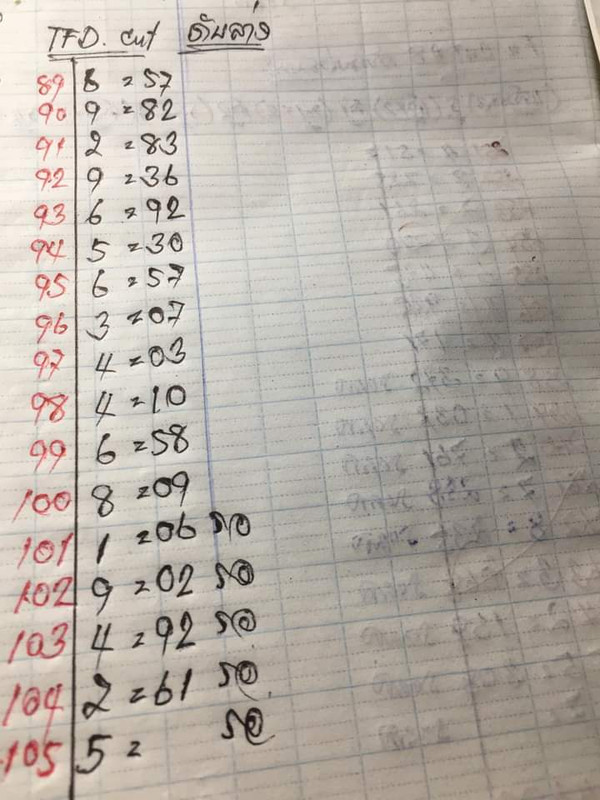 TFD. cut ดับล่าง
89 8 = 57
90 9 = 82
91 2 = 83
92 9 = 36
93 6 = 92
94 5 = 30
95 6 = 57
96 3 = 07
97 4 = 03
98 4 = 10
99 6 = 58
100 8 = 09
101 1 = 06 รอ
102 9 = 02 รอ
103 4 = 92 รอ
104 2 = 61 รอ
105 5 = รอ